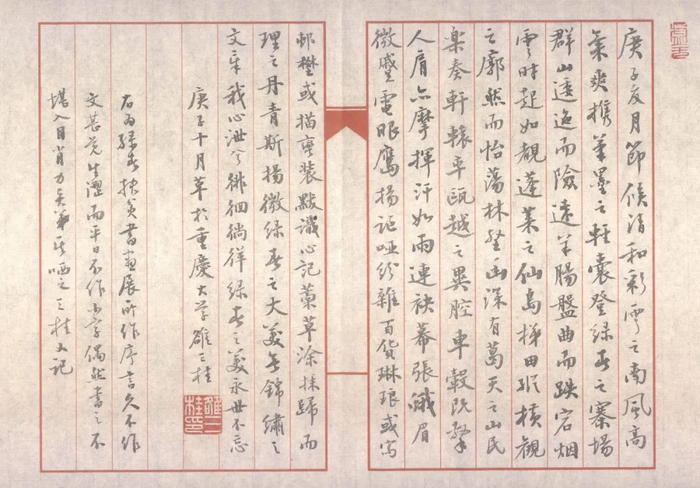 庚子夏月節候清和彩雲之南風高
氣爽携筆墨之輕囊登绿春之寨場
群山逶迤而險遠羊腸盤曲而跌宕烟
雲時起如觀蓬萊之仙島梯田縱横觀
之廓然而怡蕩林壑幽深有葛天之山民
樂奏軒轅車甌越之異腔車轂既擊
人肩亦摩揮汗如雨連袂幕張娥眉
微蹙電眼鷹揚謳啞紛雜百貨琳琅或寫
邨樊或描蠻裝默識心記藁草涂抹歸而
理之丹青斯揚微绿春之大美無錦繡之
文章我心泄兮徘徊徜徉绿春之美永世不忘
庚子十月草於重慶大學雒三桂
右為绿春扶貧書畫展所作序言久不作
文甚覺生澀而平日不作小字偶然書之不
堪入目哂之三桂又記